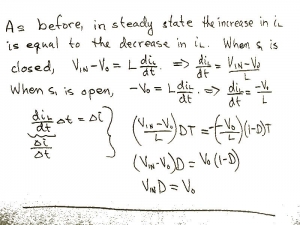 As before, in steady state the increase in iL
is equal to the decrease in iL. When S1 is
closed, VIN-Vo = L diL/dt. => diL/dt = VIN-Vo/L
When S1 is open, -Vo = L diL/dt. => diL/dt = -Vo/L
diL/dt Δt = Δi
Δi/Δt
(VIN-Vo/L) DT = -(-Vo/L)(1-D)T
(VIN-Vo)D = Vo(1-D)
VIN D = Vo